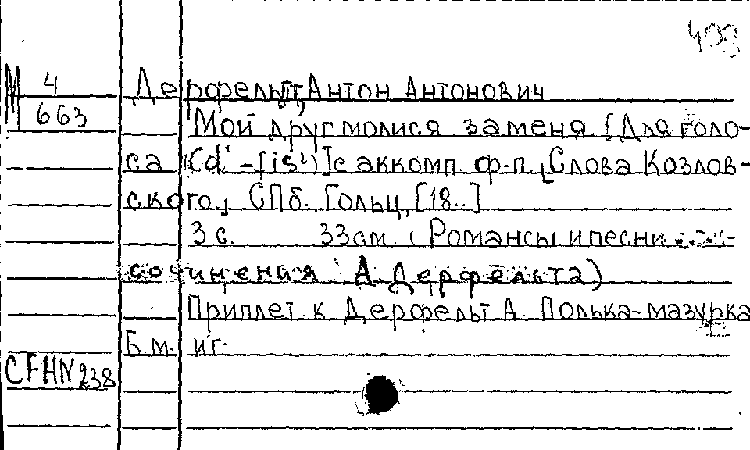 493
М 4
663
Дерфельт, Антон Антонович
Мой друг молися за меня. [Для голо-
са (d¹-fis²)] с аккомп. ф-п. [Слова Козлов-
ского.] СПб. Гольц, [18..]
3 с. 33 см. (Романсы и песни
сочинения А. Дерфельта)
Приплет к Дерфельт А. Полька-мазурка
Б.м. и г.
CFHN 238